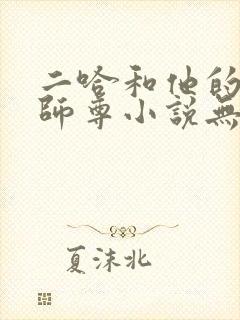 二哈和他的
師尊小説無
夏沫北